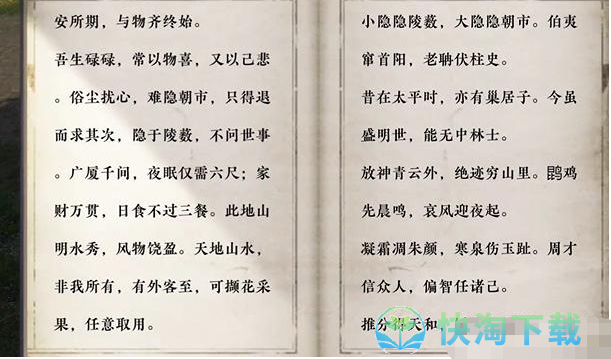 安所期，与物齐终始。
吾生碌碌，常以物喜，又以己悲
。俗尘扰心，难隐朝市，只得退
而求其次，隐于陵薮，不问世事
。广厦千间，夜眠仅需六尺；家
财万贯，日食不过三餐。此地山
明水秀，风物饶盈。天地山水，
非我所有，有外客至，可撷花采
果，任意取用。
小隐隐陵薮，大隐隐朝市。伯夷
窜首阳，老聃伏柱史。
昔在太平时，亦有巢居子。今虽
盛明世，能无中林士。
放神青云外，绝迹穷山里。鹍鸡
先晨鸣，哀风迎夜起。
凝霜凋朱颜，寒泉伤玉趾。周才
信众人，偏智任诸己。
推分得天和，
快淘下载